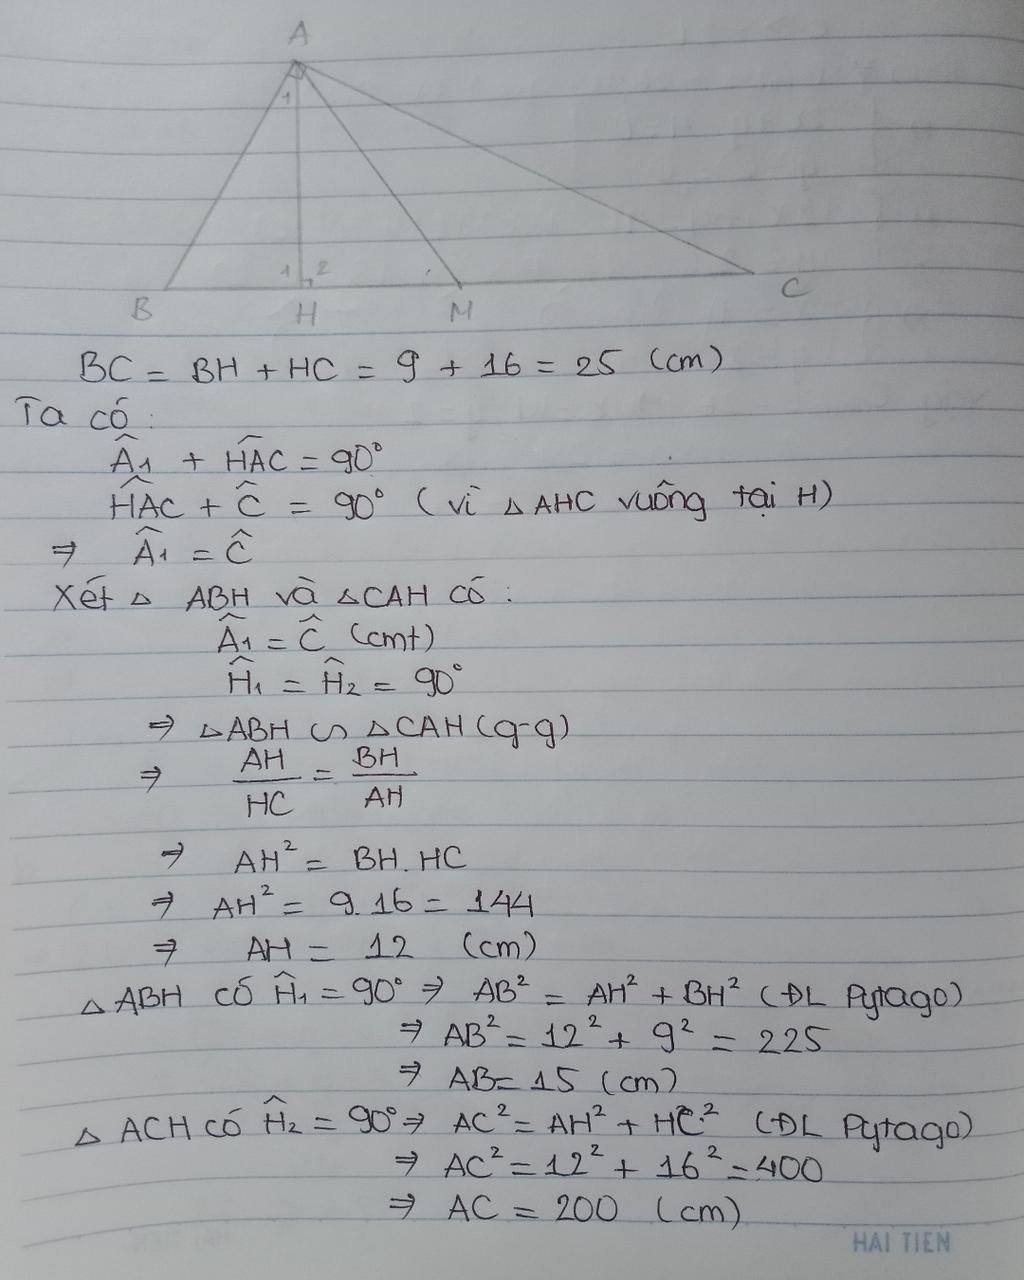 A
1
1 2
B H M C
BC = BH + HC = 9 + 16 = 25 (cm)
Ta có:
Â₁ + HÂC = 90°
HÂC + Ĉ = 90° (vì △AHC vuông tại H)
⇒ Â₁ = Ĉ
Xét △ ABH và △CAH có:
Â₁ = Ĉ (cmt)
Ĥ₁ = Ĥ₂ = 90°
⇒ △ABH ∽ △CAH (g-g)
⇒ AH/HC = BH/AH
⇒ AH² = BH.HC
⇒ AH² = 9.16 = 144
⇒ AH = 12 (cm)
△ABH có Ĥ₁ = 90° ⇒ AB² = AH² + BH² (ĐL Pytago)
⇒ AB² = 12² + 9² = 225
⇒ AB = 15 (cm)
△ ACH có Ĥ₂ = 90° ⇒ AC² = AH² + HC² (ĐL Pytago)
⇒ AC² = 12² + 16² = 400
⇒ AC = 200 (cm)
HAI TIEN